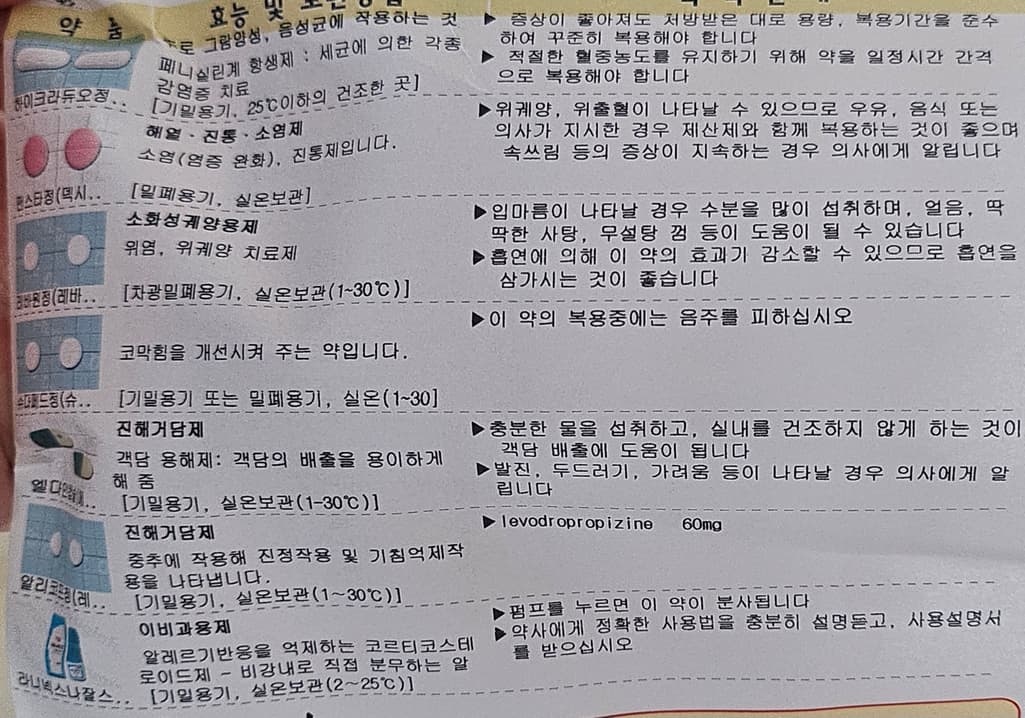 약 품
효능 및 보관방법
▶ 증상이 좋아져도 처방받은 대로 용량, 복용기간을 준수
하여 꾸준히 복용해야 합니다
▶ 적절한 혈중농도를 유지하기 위해 약을 일정시간 간격
으로 복용해야 합니다
주로 그람양성, 음성균에 작용하는 것
페니실린계 항생제 : 세균에 의한 각종
감염증 치료
[기밀용기, 25℃이하의 건조한 곳]
하이크라듀오정..
▶위궤양, 위출혈이 나타날 수 있으므로 우유, 음식 또는
의사가 지시한 경우 제산제와 함께 복용하는 것이 좋으며
속쓰림 등의 증상이 지속하는 경우 의사에게 알립니다
해열·진통·소염제
소염(염증 완화), 진통제입니다.
[밀폐용기, 실온보관]
펜스타정(덱시..
▶입마름이 나타날 경우 수분을 많이 섭취하며, 얼음, 딱
딱한 사탕, 무설탕 껌 등이 도움이 될 수 있습니다
▶흡연에 의해 이 약의 효과가 감소할 수 있으므로 흡연을
삼가시는 것이 좋습니다
소화성궤양용제
위염, 위궤양 치료제
[차광밀폐용기, 실온보관(1~30℃)]
레바원정(레바..
▶이 약의 복용중에는 음주를 피하십시오
코막힘을 개선시켜 주는 약입니다.
[기밀용기 또는 밀폐용기, 실온(1~30]
슈다페드정(슈..
▶충분한 물을 섭취하고, 실내를 건조하지 않게 하는 것이
객담 배출에 도움이 됩니다
▶발진, 두드러기, 가려움 등이 나타날 경우 의사에게 알
립니다
진해거담제
객담 용해제: 객담의 배출을 용이하게
해 줌
[기밀용기, 실온보관(1~30℃)]
엘다인
▶levodropropizine 60mg
진해거담제
중추에 작용해 진정작용 및 기침억제작
용을 나타냅니다.
[기밀용기, 실온보관(1~30℃)]
알리코프정(레..
▶펌프를 누르면 이 약이 분사됩니다
▶약사에게 정확한 사용법을 충분히 설명듣고, 사용설명서
를 받으십시오
이비과용제
알레르기반응을 억제하는 코르티코스테
로이드제 - 비강내로 직접 분무하는 알
[기밀용기, 실온보관(2~25℃)]
라니넥스나잘스..